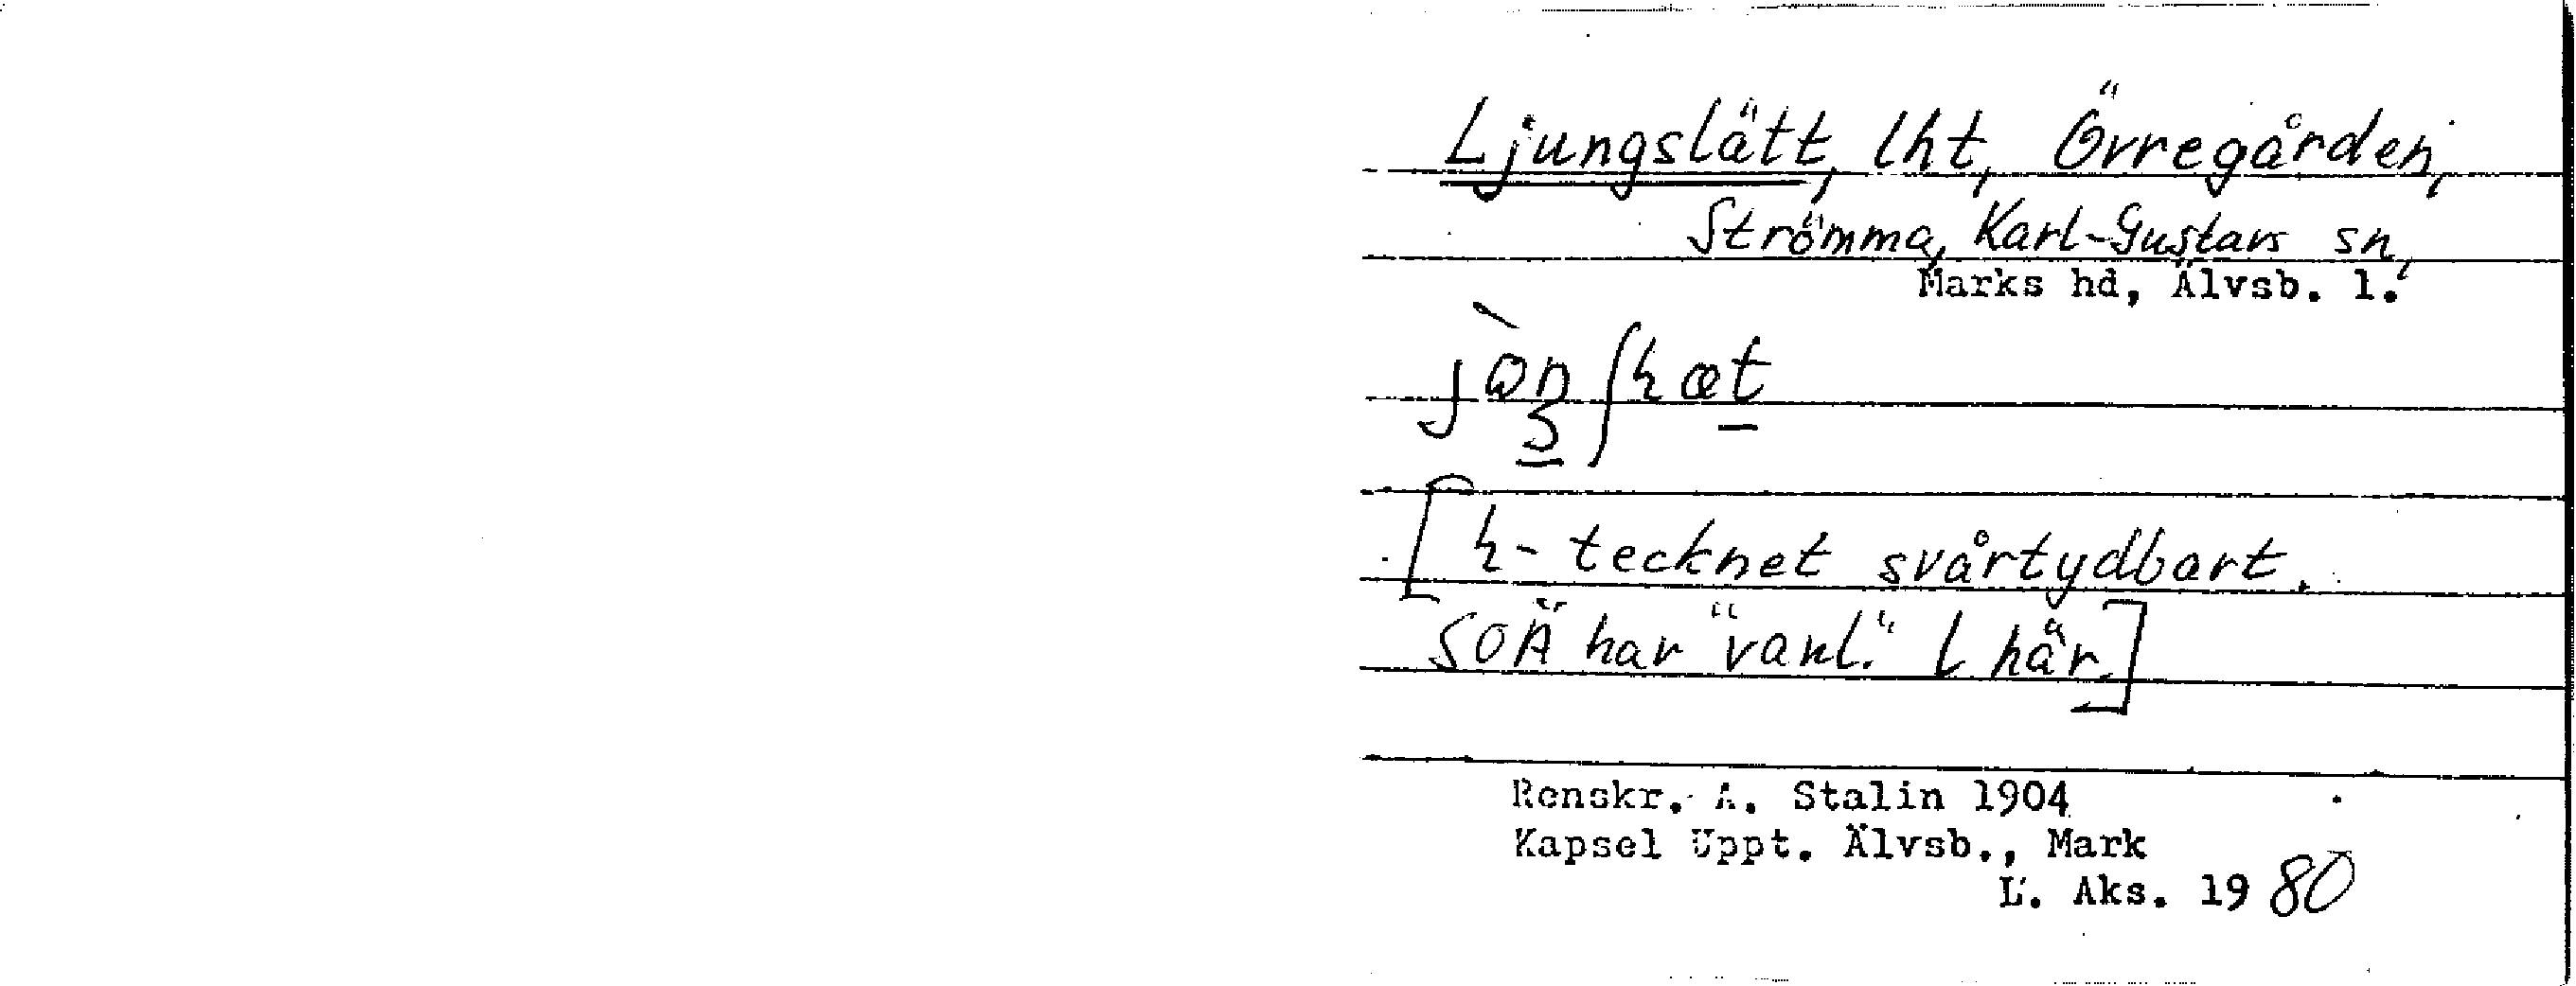 Ljungslätt, lht, Övregården,
Strömma, Karl-Gustavs sn,
Marks hd, Älvsb. l.
[ꞕ-tecknet svårtydbart.
SOÄ har "vanl." l här.]
Renskr. A. Stalin 1904
Kapsel Uppt. Älvsb., Mark
L. Aks. 1980